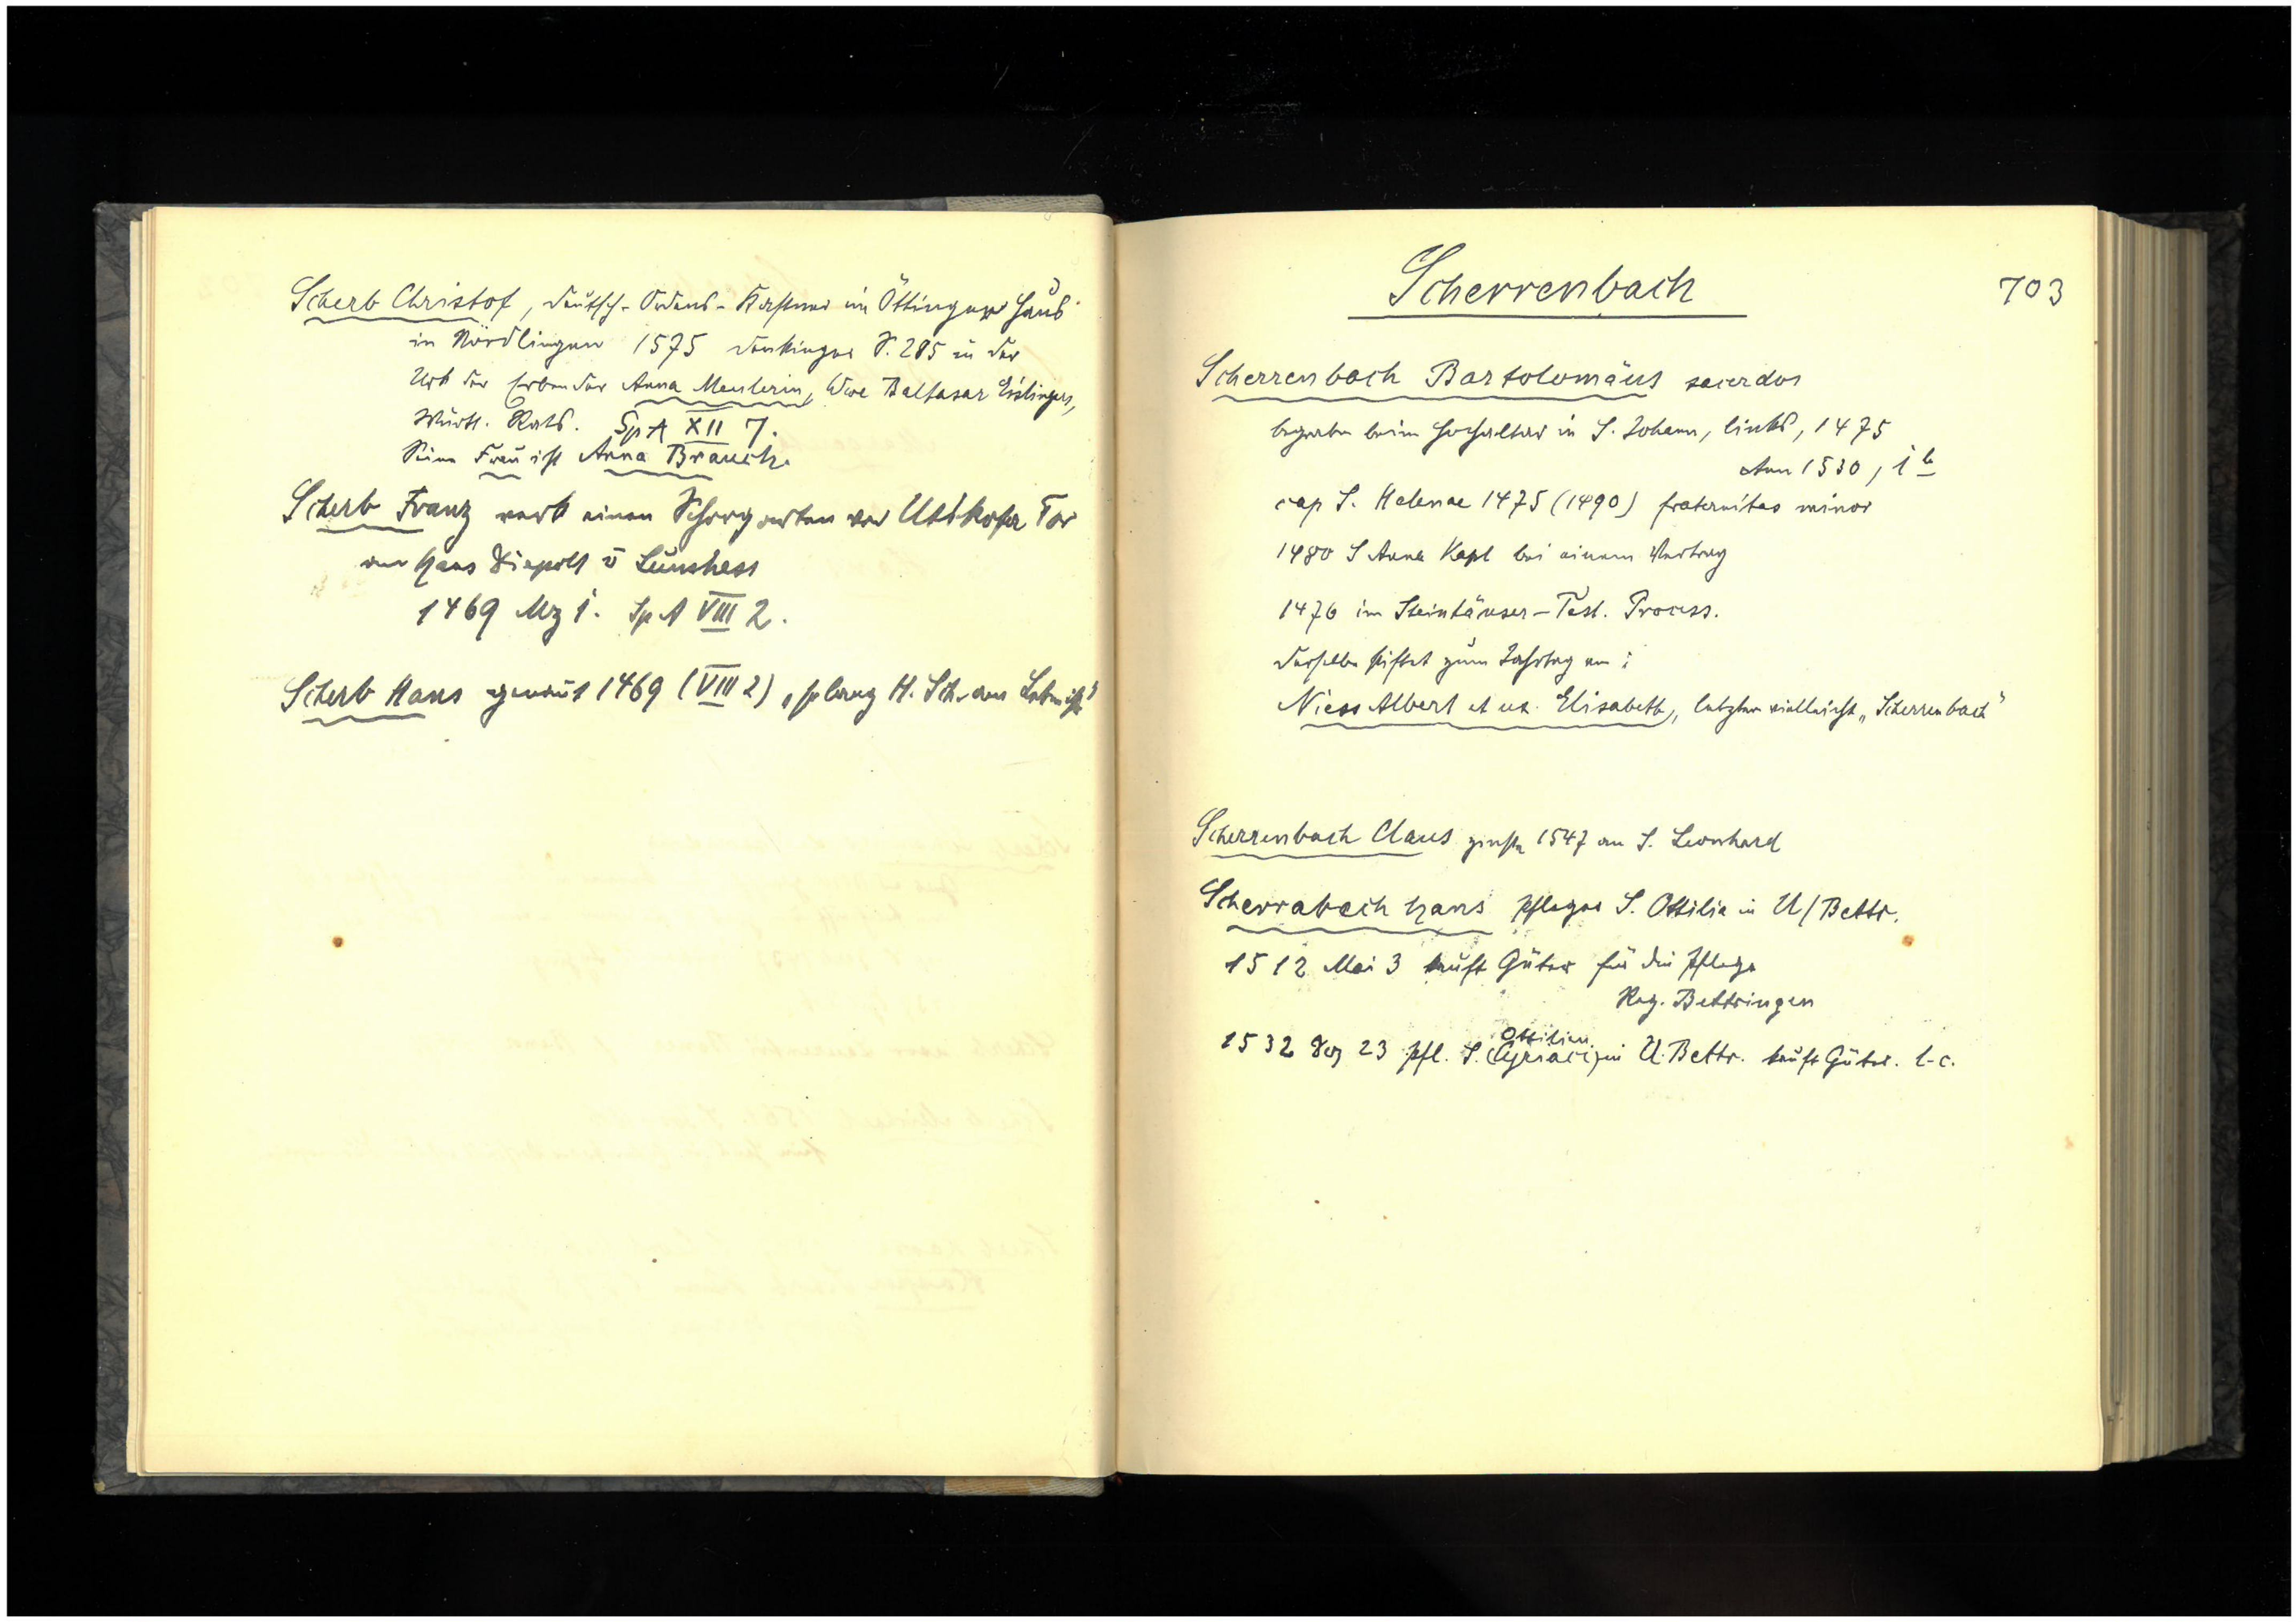 Scherb Christof, deutsch-Ordens-Kastner im Öttinger Haus
in Nördlingen 1575 Denkinger S. 285 in der
Urk der Erben der Anna Meulerin, Wwe Baltasar Eislingers,
Württ. Rats. Sp A XII 7.
Seine Frau ist Anna Brauch.
Scherb Franz verk einen Schorgarten vor Utikofer Tor
an Hans Diepolt v
1469 Mz 1. Sp A VIII 2.
Scherb Hans genannt 1469 (VIII 2) „solang H. Sch. am Leben ist"
Scherrenbach
703
Scherrenbach Bartolomäus sacerdos
begraben beim Hochaltar in S. Johann, links, 1475
Ann 1530, 1b
cap S. Helenae 1475 (1490) fraternitas minor
1480 S Anna Kapl bei einem Vertrag
1476 im Steinhäuser-Test. Process.
derselbe stiftet zum Jahrtag an:
Niess Albert et ux. Elisabeth, letztere vielleicht „Scherrenbach"
Scherrenbach Claus zinste 1547 an S. Leonhard
Scherrabach Hans Pfleger S. Ottilia in U/Bettr.
1512 Mai 3 kauft Güter für die Pflege
Reg. Bettringen
Ottilien
1532 Dez 23 Pfl. S. (Cyriaci) in U. Bettr. kauft Güter. l-c.